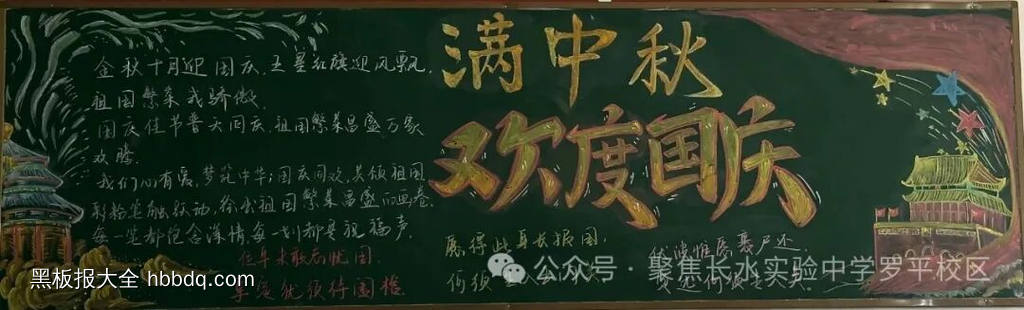 满中秋
欢度国庆
金秋十月迎国庆,五星红旗迎风飘,
祖国繁荣我骄傲.
国庆佳节普天同庆,祖国繁荣昌盛万家
欢腾.
我们心有爱,梦筑中华;国庆同欢,共颂祖国
彩粉笔触跃动,绘出祖国繁荣昌盛的画卷.
每一笔都饱含深情,每一划都是祝福声.
位卑未敢忘忧国.
愿得此身长报国,
何须
公众号·聚集长水实验中学罗平校区
黑板报大全 hbbdq.com